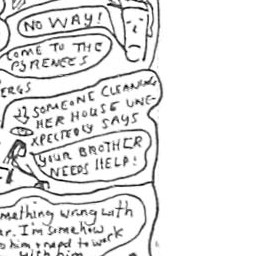 NO WAY!
COME TO THE
PYRENEES
ERGS
SOMEONE CLEANING
HER HOUSE UNE-
XPECTEDLY SAYS
YOUR BROTHER
NEEDS HELP!
mething wrong with
ar. I'm somehow
o him & napd to work
with him